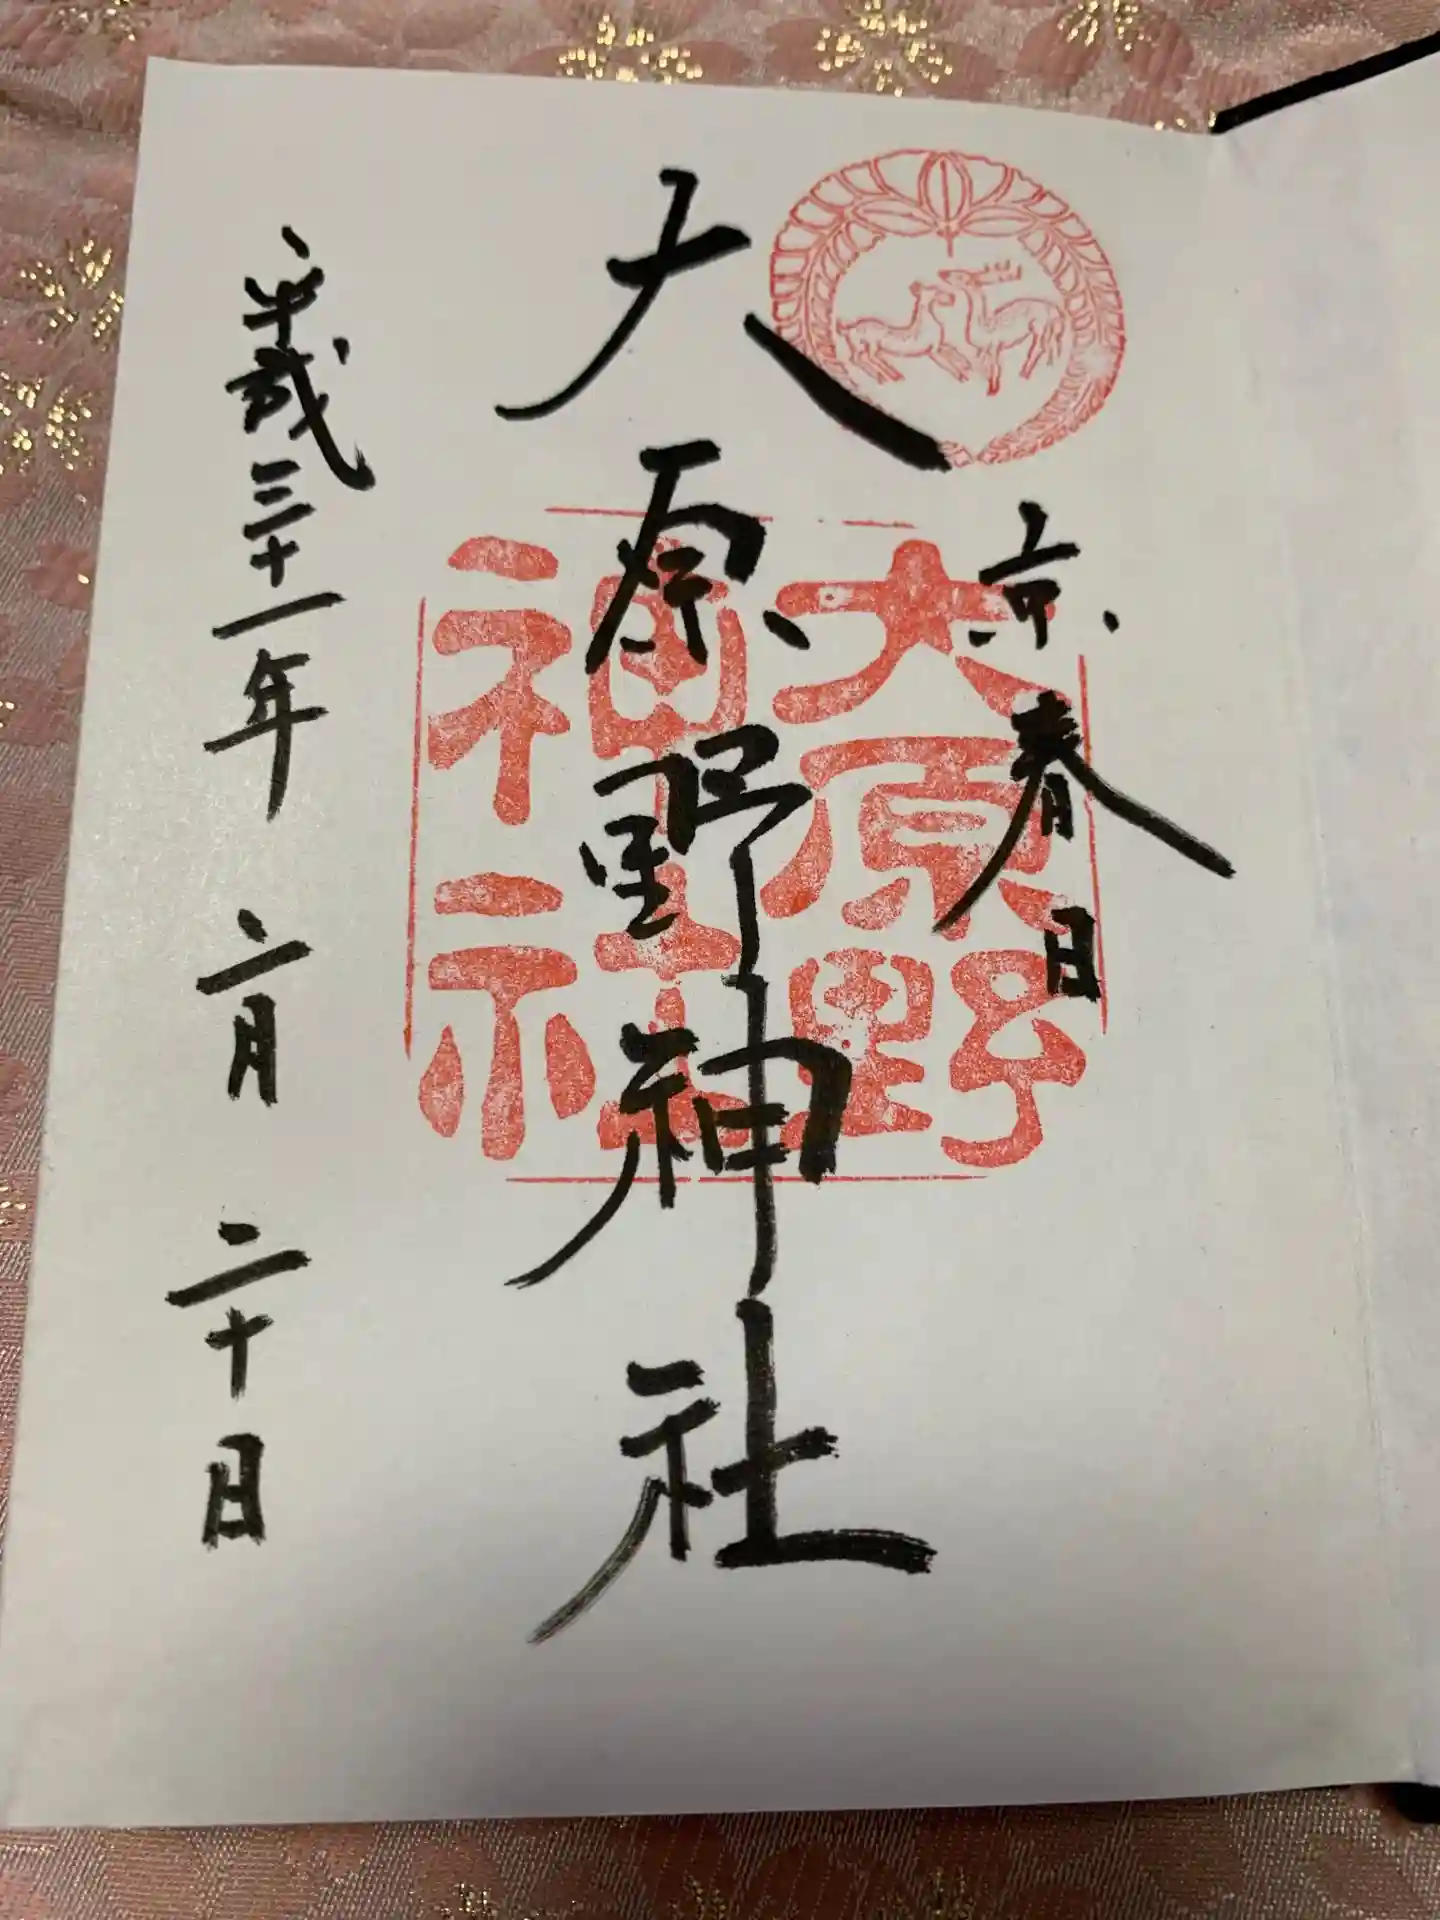 京春日
大原野神社
大原野
神社
平成三十一年二月二十日